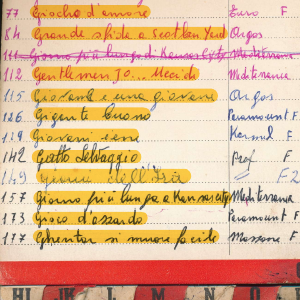 77 Giochi d'amore Euro F
84 Grande sfida a Scotland Yard Orgos
111 Giorno più lungo di Kansas City Mediterranea
112 Gentlemen Jo... Uccidi Mediterranea
115 Giovanotti e una giovane Orgos
126 Gigante buono Paramount F
129 Giovani
142 Gatto Selvaggio Prof. F
149 dell'Ira F2
157 Giorno più lungo a Kansas City Mediterranea
173 Gioco d'azzardo Paramount F
177 Ghentar si muore facile F
H I J K L M N O